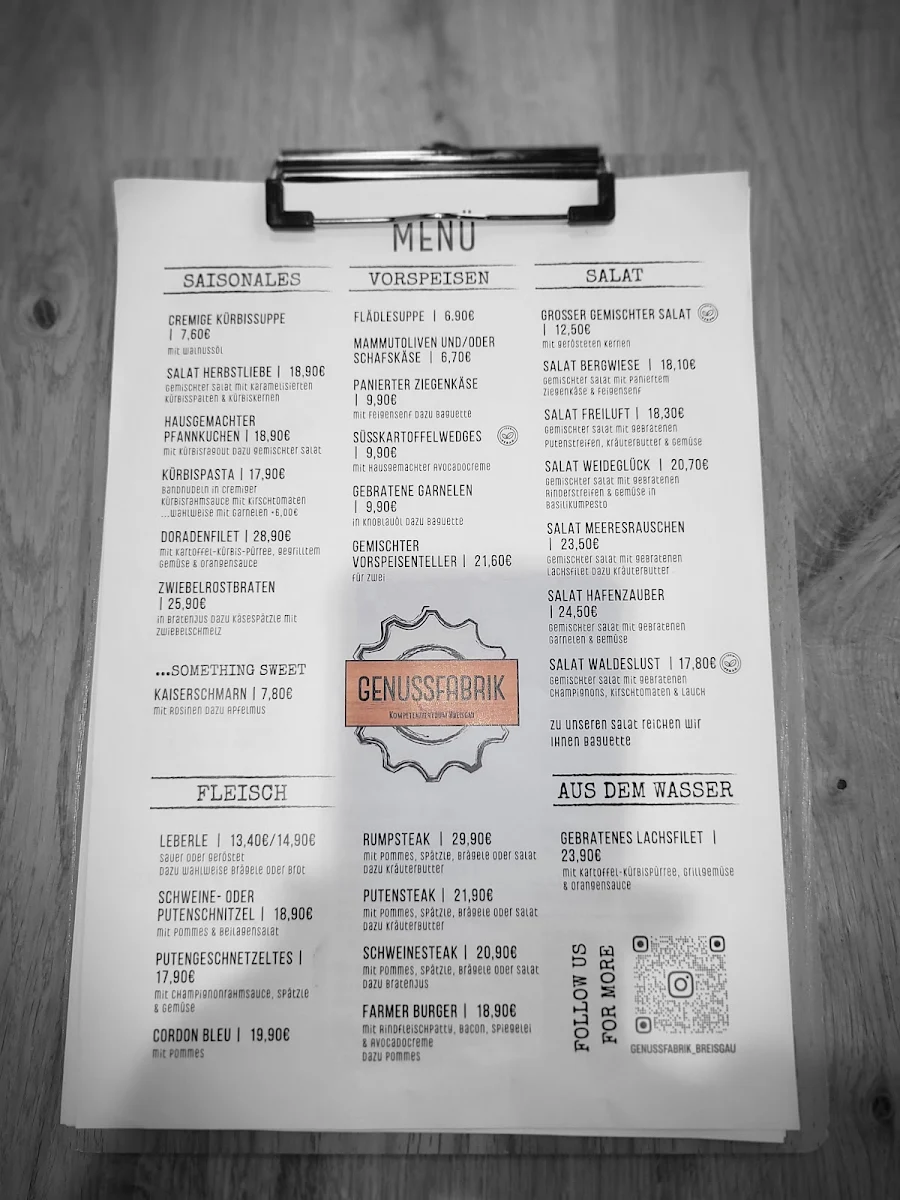 MENÜ
SAISONALES
CREMIGE KÜRBISSUPPE
| 7,60€
mit Walnussöl
SALAT HERBSTLIEBE | 18,90€
Gemischter Salat mit karamelisierten
Kürbisspalten & Kürbiskernen
HAUSGEMACHTER
PFANNKUCHEN | 18,90€
mit Kürbisragout dazu gemischter Salat
KÜRBISPASTA | 17,90€
Bandnudeln in cremiger
Kürbisrahmsauce mit Kirschtomaten
...wahlweise mit Garnelen +6,00€
DORADENFILET | 28,90€
mit Kartoffel-Kürbis-Pürree, gegrilltem
Gemüse & Orangensauce
ZWIEBELROSTBRATEN
| 25,90€
in Bratenjus dazu Käsespätzle mit
Zwiebelschmelz
...SOMETHING SWEET
KAISERSCHMARN | 7,80€
mit Rosinen dazu Apfelmus
VORSPEISEN
FLÄDLESUPPE | 6.90€
MAMMUTOLIVEN UND/ODER
SCHAFSKÄSE | 6,70€
PANIERTER ZIEGENKÄSE
| 9,90€
mit Feigensenf dazu Baguette
SÜSSKARTOFFELWEDGES
| 9,90€
mit hausgemachter Avocadocreme
GEBRATENE GARNELEN
| 9,90€
in Knoblauöl dazu Baguette
GEMISCHTER
VORSPEISENTELLER | 21,60€
für zwei
GENUSSFABRIK
KOMPETENZZENTRUM BREISGAU
SALAT
GROSSER GEMISCHTER SALAT
| 12,50€
mit gerösteten Kernen
SALAT BERGWIESE | 18,10€
Gemischter Salat mit paniertem
Ziegenkäse & Feigensenf
SALAT FREILUFT | 18,30€
Gemischter Salat mit gebratenen
Putenstreifen, Kräuterbutter & Gemüse
SALAT WEIDEGLÜCK | 20,70€
Gemischter Salat mit gebratenen
Rinderstreifen & Gemüse in
Basilikumpesto
SALAT MEERESRAUSCHEN
| 23,50€
Gemischter Salat mit gebratenen
Lachsfilet dazu Kräuterbutter
SALAT HAFENZAUBER
| 24,50€
Gemischter Salat mit gebratenen
Garnelen & Gemüse
SALAT WALDESLUST | 17,80€
Gemischter Salat mit gebratenen
Champignons, Kirschtomaten & Lauch
zu unseren Salat reichen wir
Ihnen Baguette
FLEISCH
LEBERLE | 13,40€/14,90€
sauer oder geröstet
dazu wahlweise Brägele oder Brot
SCHWEINE- ODER
PUTENSCHNITZEL | 18,90€
mit Pommes & Beilagensalat
PUTENGESCHNETZELTES |
17,90€
mit Champignonrahmsauce, Spätzle
& Gemüse
CORDON BLEU | 19,90€
mit Pommes
RUMPSTEAK | 29,90€
mit Pommes, Spätzle, Brägele oder Salat
dazu Kräuterbutter
PUTENSTEAK | 21,90€
mit Pommes, Spätzle, Brägele oder Salat
dazu Kräuterbutter
SCHWEINESTEAK | 20,90€
mit Pommes, Spätzle, Brägele oder Salat
dazu Bratenjus
FARMER BURGER | 18,90€
mit Rindfleischpatty, Bacon, Spiegelei
& Avocadocreme
dazu Pommes
AUS DEM WASSER
GEBRATENES LACHSFILET |
23,90€
mit Kartoffel-Kürbispürree, Grillgemüse
& Orangensauce
FOLLOW US
FOR MORE
GENUSSFABRIK_BREISGAU